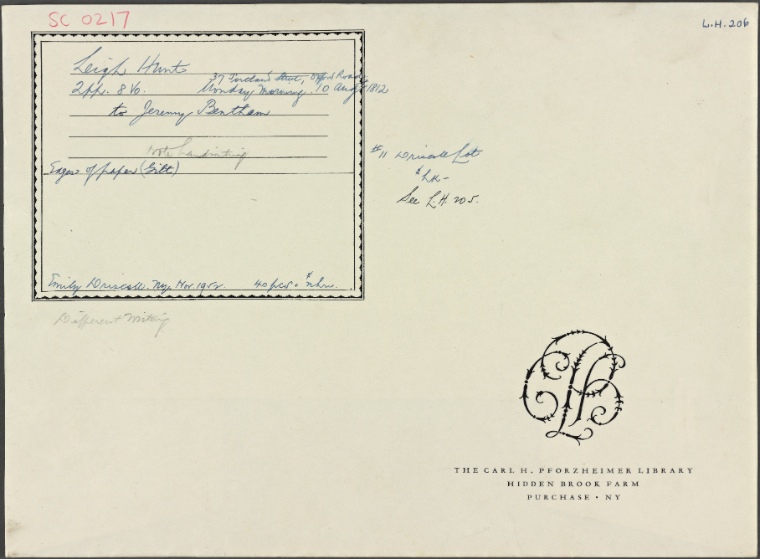 SC 0217
L.H. 206
Leigh Hunt
37 Portland Street, Oxford Road
2pp. 8vo. Monday Morning. 10 Aug 1812
to Jeremy Bentham
note handwriting
Edges of paper (Gilt)
#11 Driscoll Lot
See L.H. 205.
Emily Driscoll. Nyc Nov. 1952. 40 pcs.
Different Writing
THE CARL H. PFORZHEIMER LIBRARY
HIDDEN BROOK FARM
PURCHASE • NY